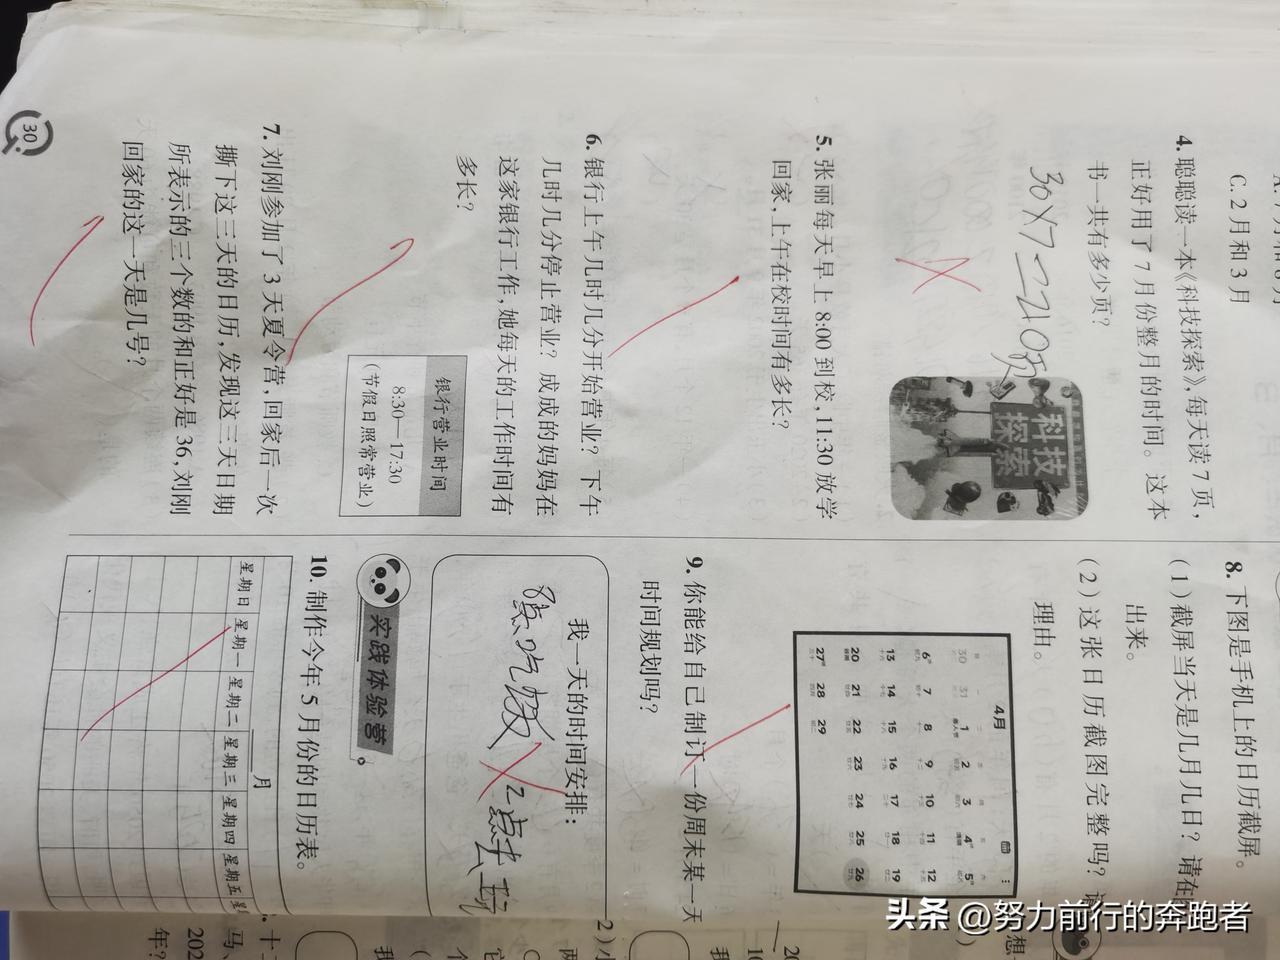 C. 2月和3月
4. 聪聪读一本《科技探索》，每天读7页，
正好用了7月份整月的时间。这本
书一共有多少页？
30×7=210页
科技
探索
5. 张丽每天早上8:00到校，11:30放学
回家，上午在校时间有多长？
6. 银行上午几时几分开始营业？下午
几时几分停止营业？成成的妈妈在
这家银行工作，她每天的工作时间有
多长？
银行营业时间
8:30—17:30
（节假日照常营业）
7. 刘刚参加了3天夏令营，回家后一次
撕下这三天的日历，发现这三天日期
所表示的三个数的和正好是36，刘刚
回家的这一天是几号？
30
8. 下图是手机上的日历截屏。
（1）截屏当天是几月几日？请在
出来。
（2）这张日历截图完整吗？
理由。
4月
30 31 1 2 3 4 5
6 7 8 9 10 11 12
13 14 15 16 17 18 19
20 21 22 23 24 25 26
27 28 29
9. 你能给自己制订一份周末某一天
时间规划吗？
我一天的时间安排：
8点吃饭
2点去
实践体验营
10. 制作今年5月份的日历表。
月
星期日 星期一 星期二 星期三 星期四 星期五
头条 @努力前行的奔跑者